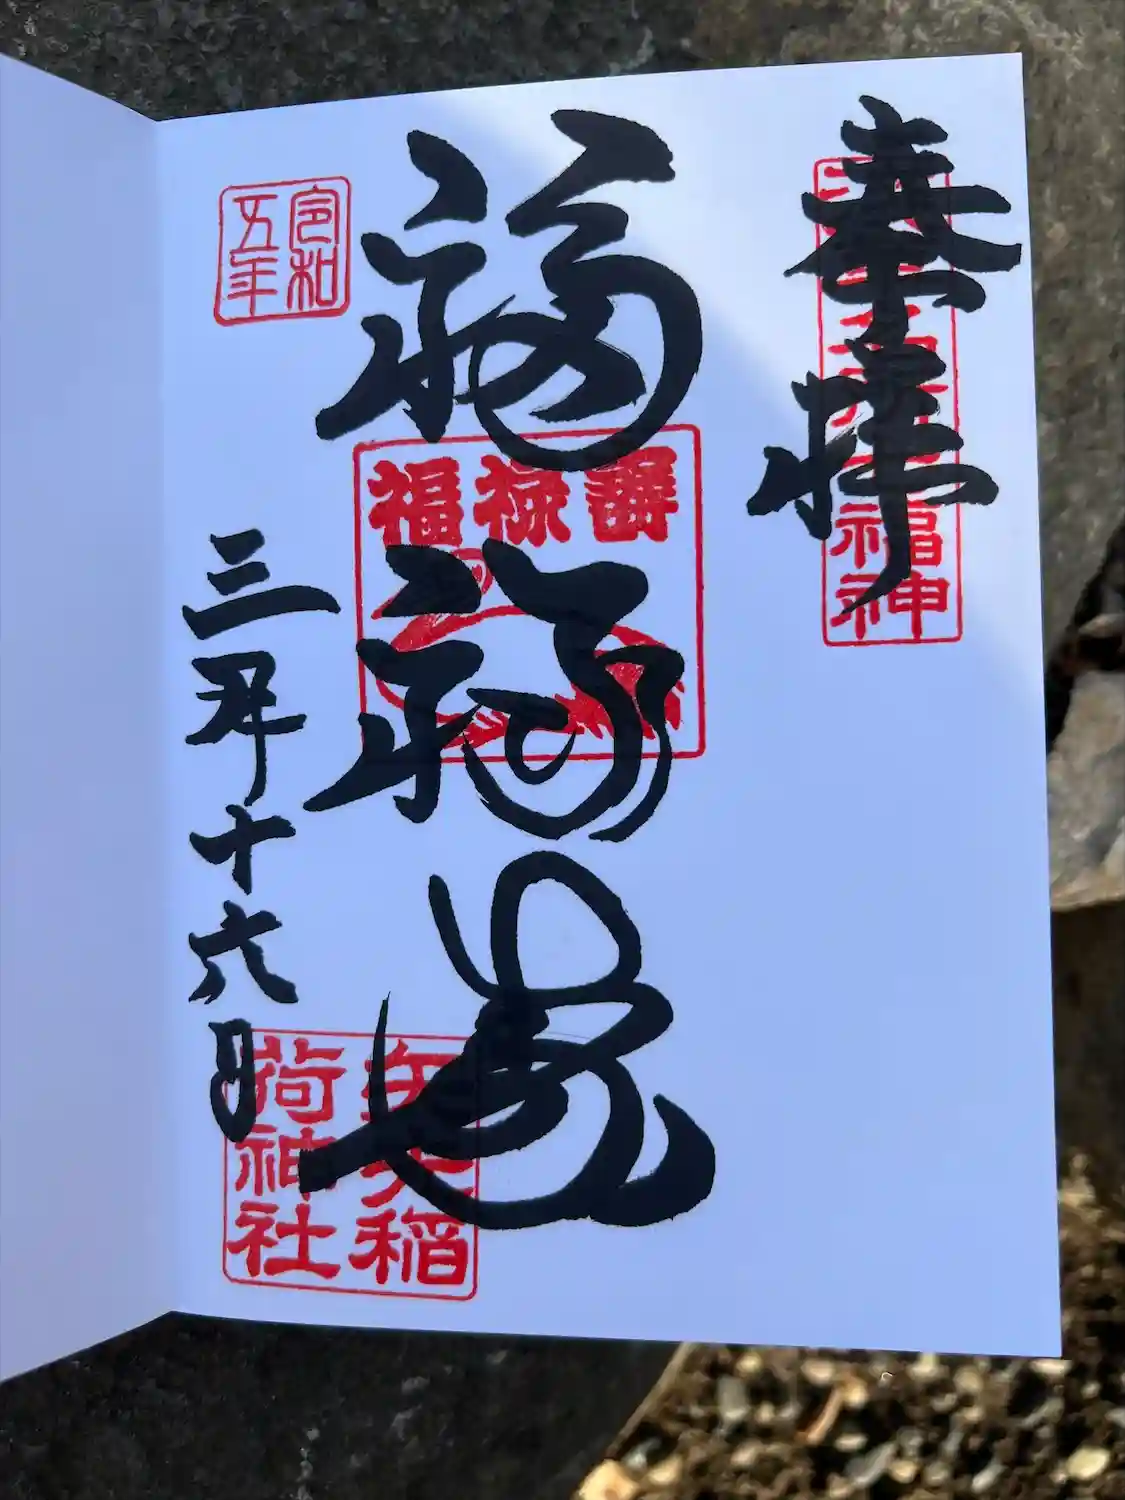 奉拝
福神
福禄寿
福禄壽
令和
五年
三月十六日
稲
荷神社